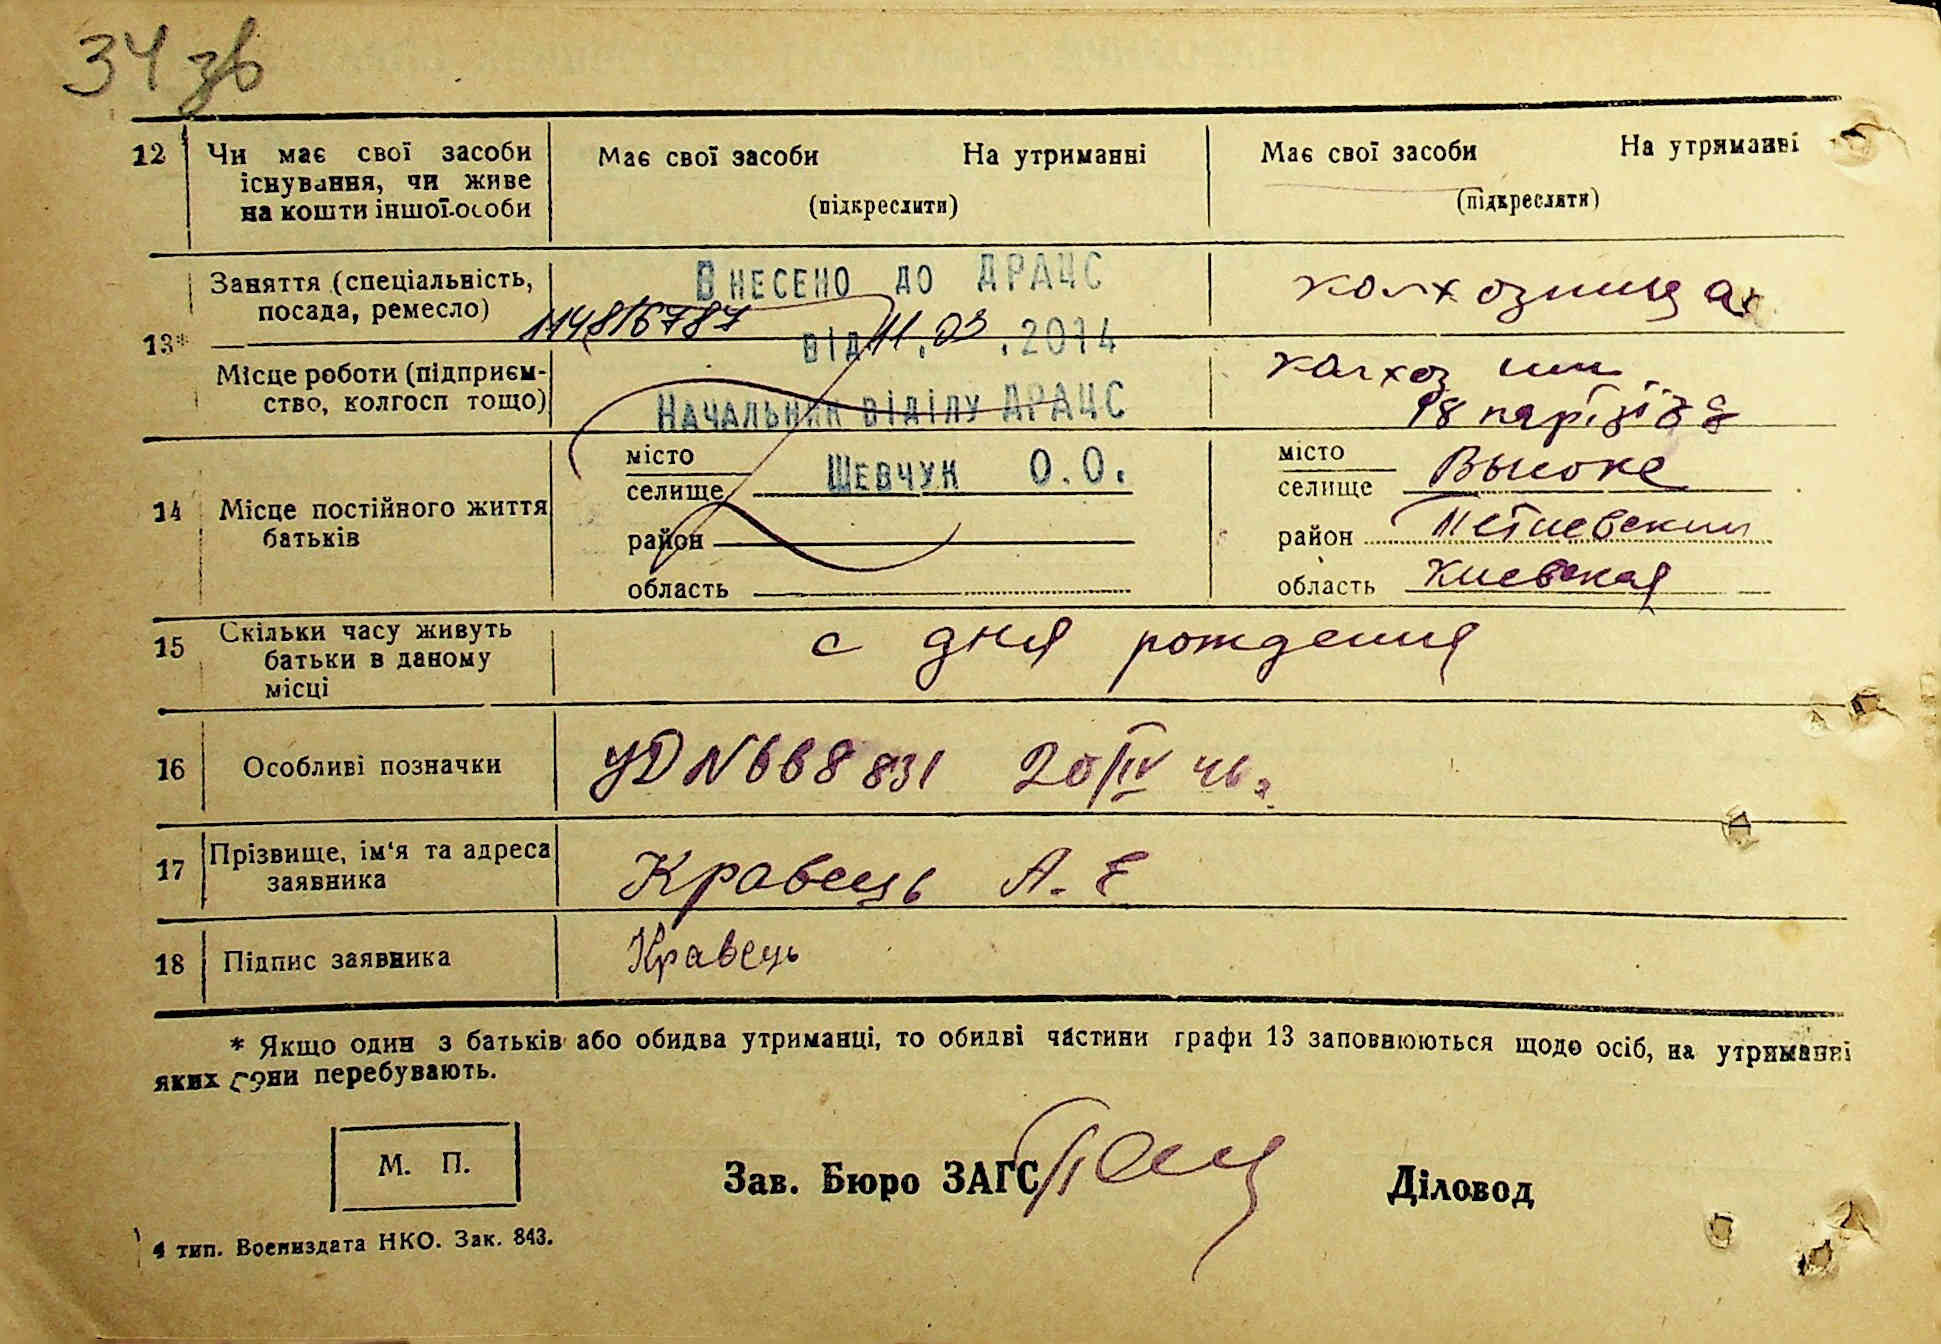 34 зв
12 Чи має свої засоби існування, чи живе на кошти іншої особи
Має свої засоби На утриманні
(підкреслити)
Має свої засоби На утриманні
(підкреслити)
13*
Заняття (спеціальність, посада, ремесло)
Внесено до ДРАЦС
колхозница
від 11.03.2014
Місце роботи (підприєм-
ство, колгосп тощо)
Начальник відділу ДРАЦС
колхоз им
18 партз
14 Місце постійного життя батьків
місто
селище
Шевчук О.О.
район
область
місто
селище Высоке
район Тетиевский
область Киевская
15 Скільки часу живуть батьки в даному місці
с дня рождения
16 Особливі позначки
УД N 668831 20/IV 46 г.
17 Прізвище, ім'я та адреса заявника
Кравець А. Е
18 Підпис заявника
Кравець
* Якщо один з батьків або обидва утриманці, то обидві частини графи 13 заповнюються щодо осіб, на утриманні
яких вони перебувають.
М. П.
Зав. Бюро ЗАГС
Діловод
4 тип. Воениздата НКО. Зак. 843.